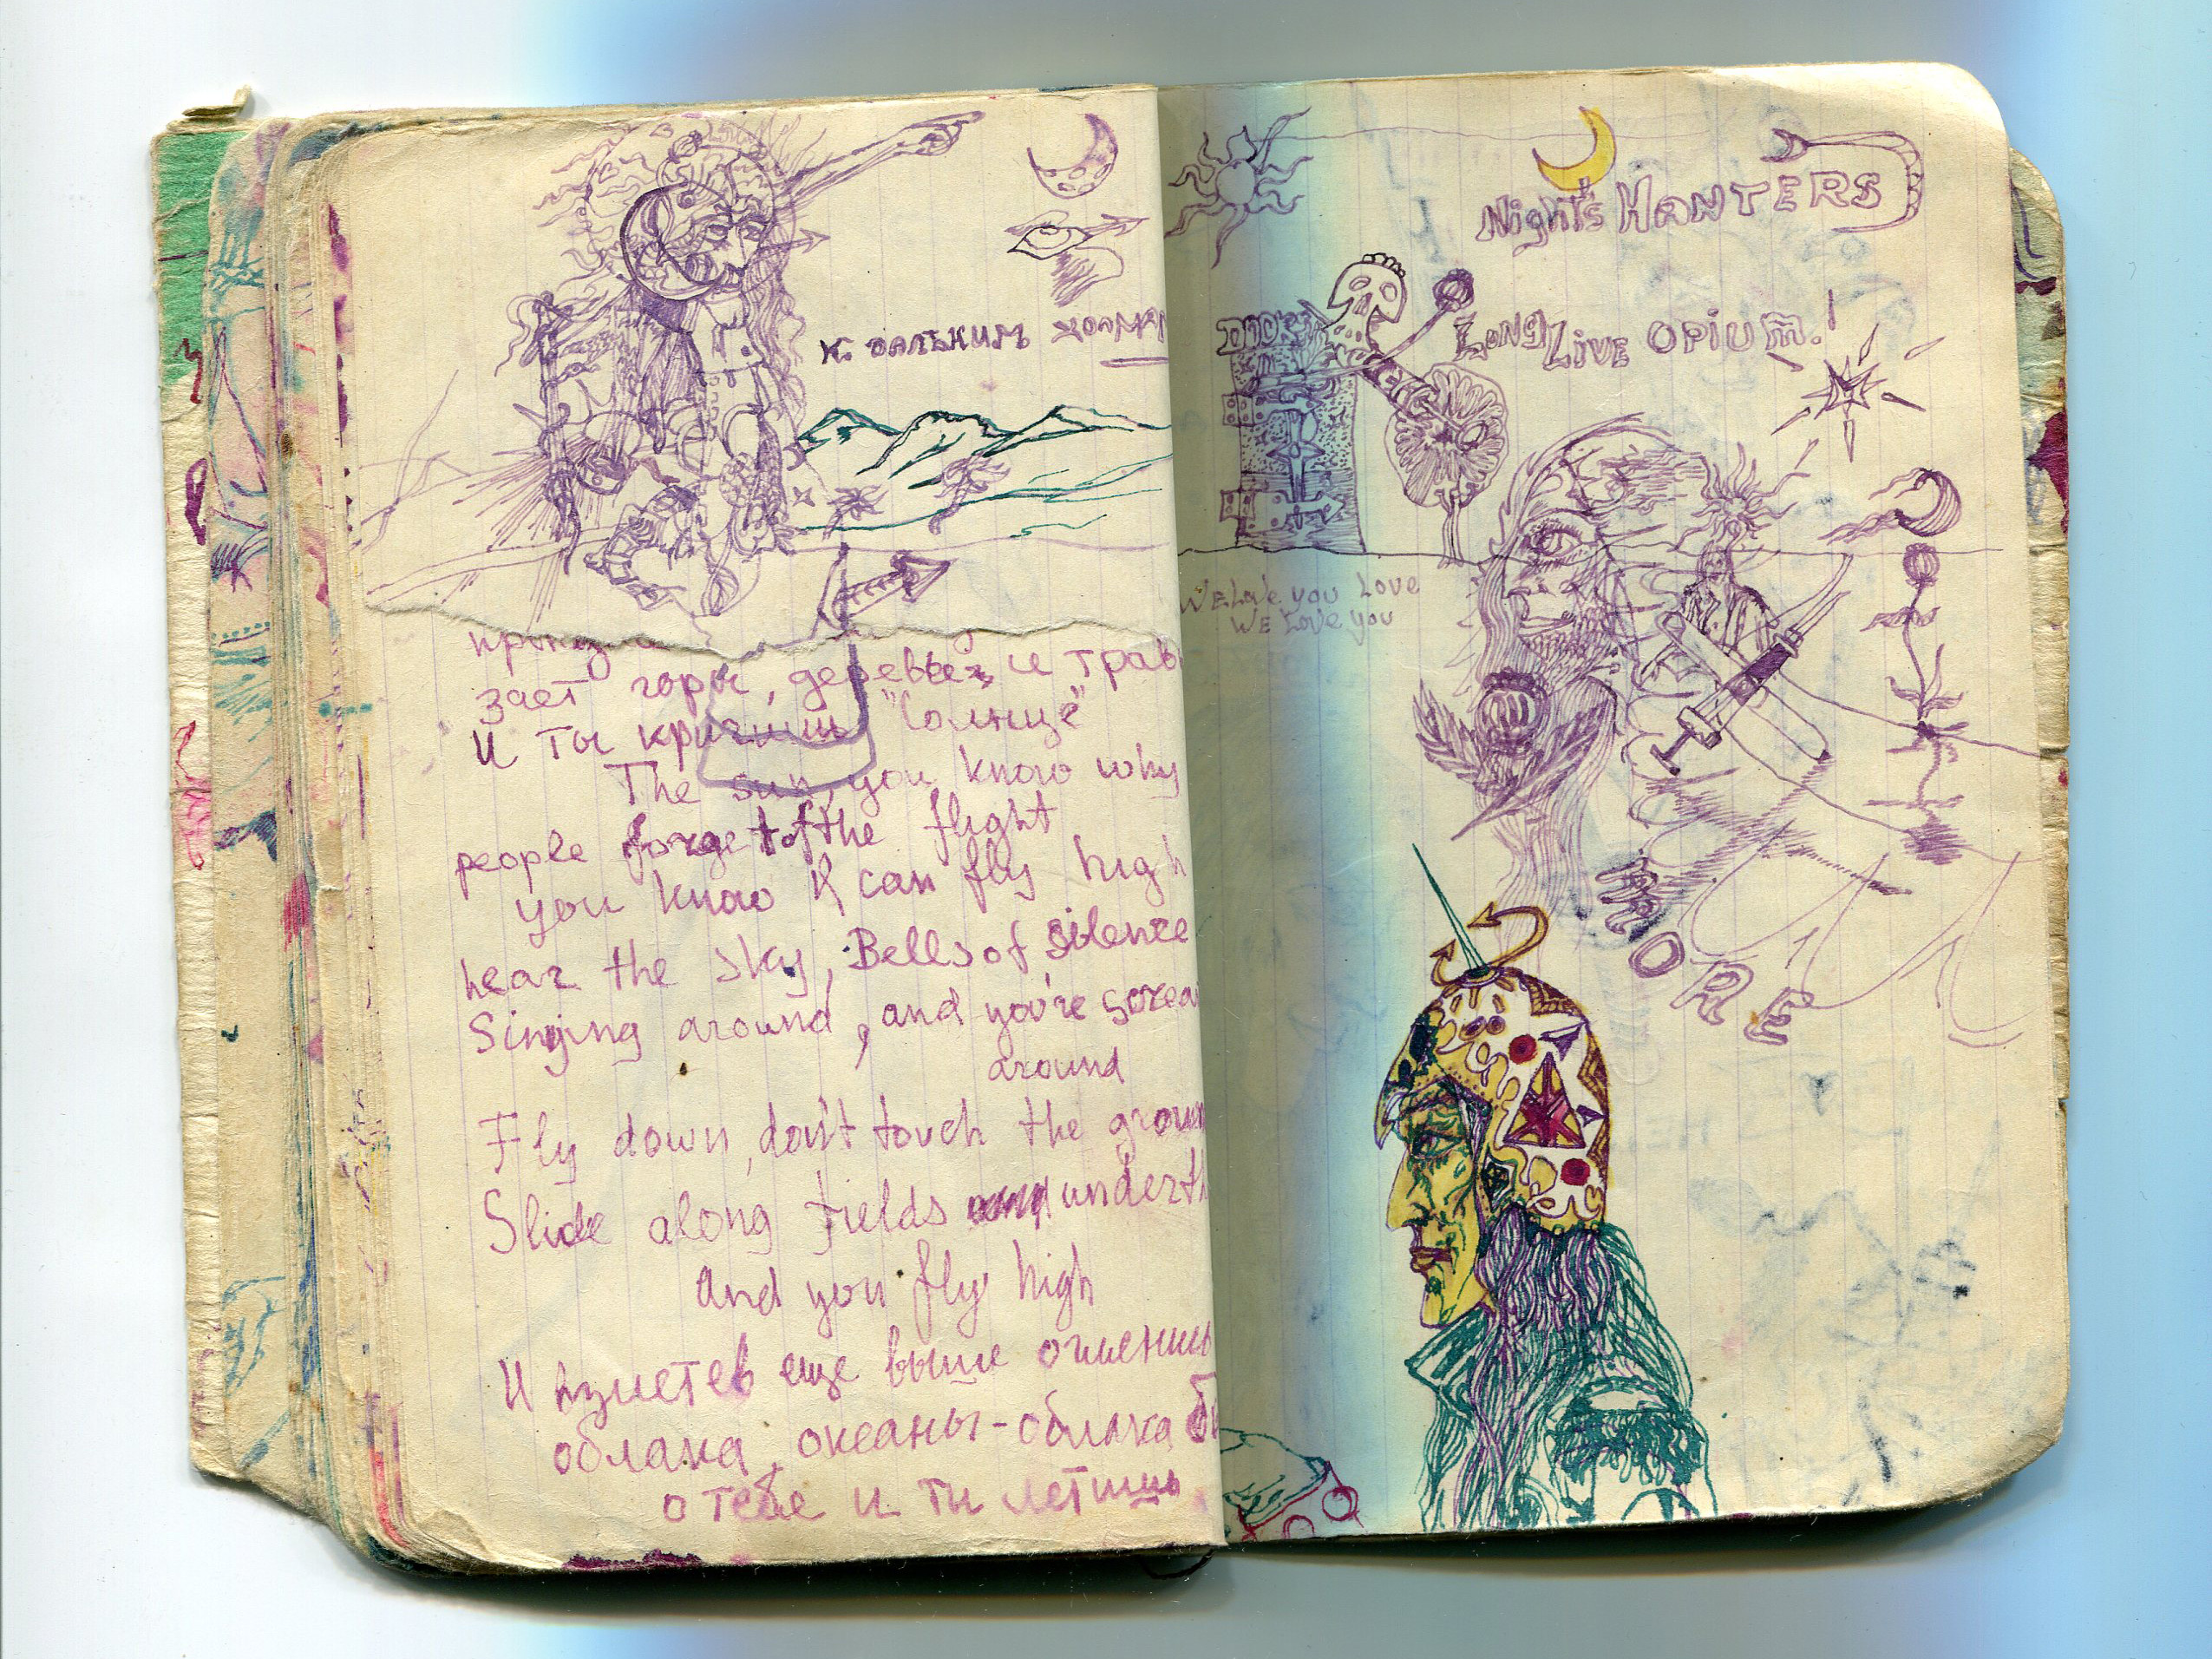 к дальним холмам
зает горы, деревья и трав
И ты кричишь "Солнце"
The sun, you know why
people forget of the flight
you know I can fly high
hear the sky, Bells of silence
Singing around, and you're screa
around
Fly down, don't touch the groun
Slide along fields underth
and you fly high
И взлетев еще выше огненны
облака, океаны-облака
о тебе и ты летишь
Night's HANTERS
DOORS
Long Live OPiUm!
We Love you Love
We Love you
MORE